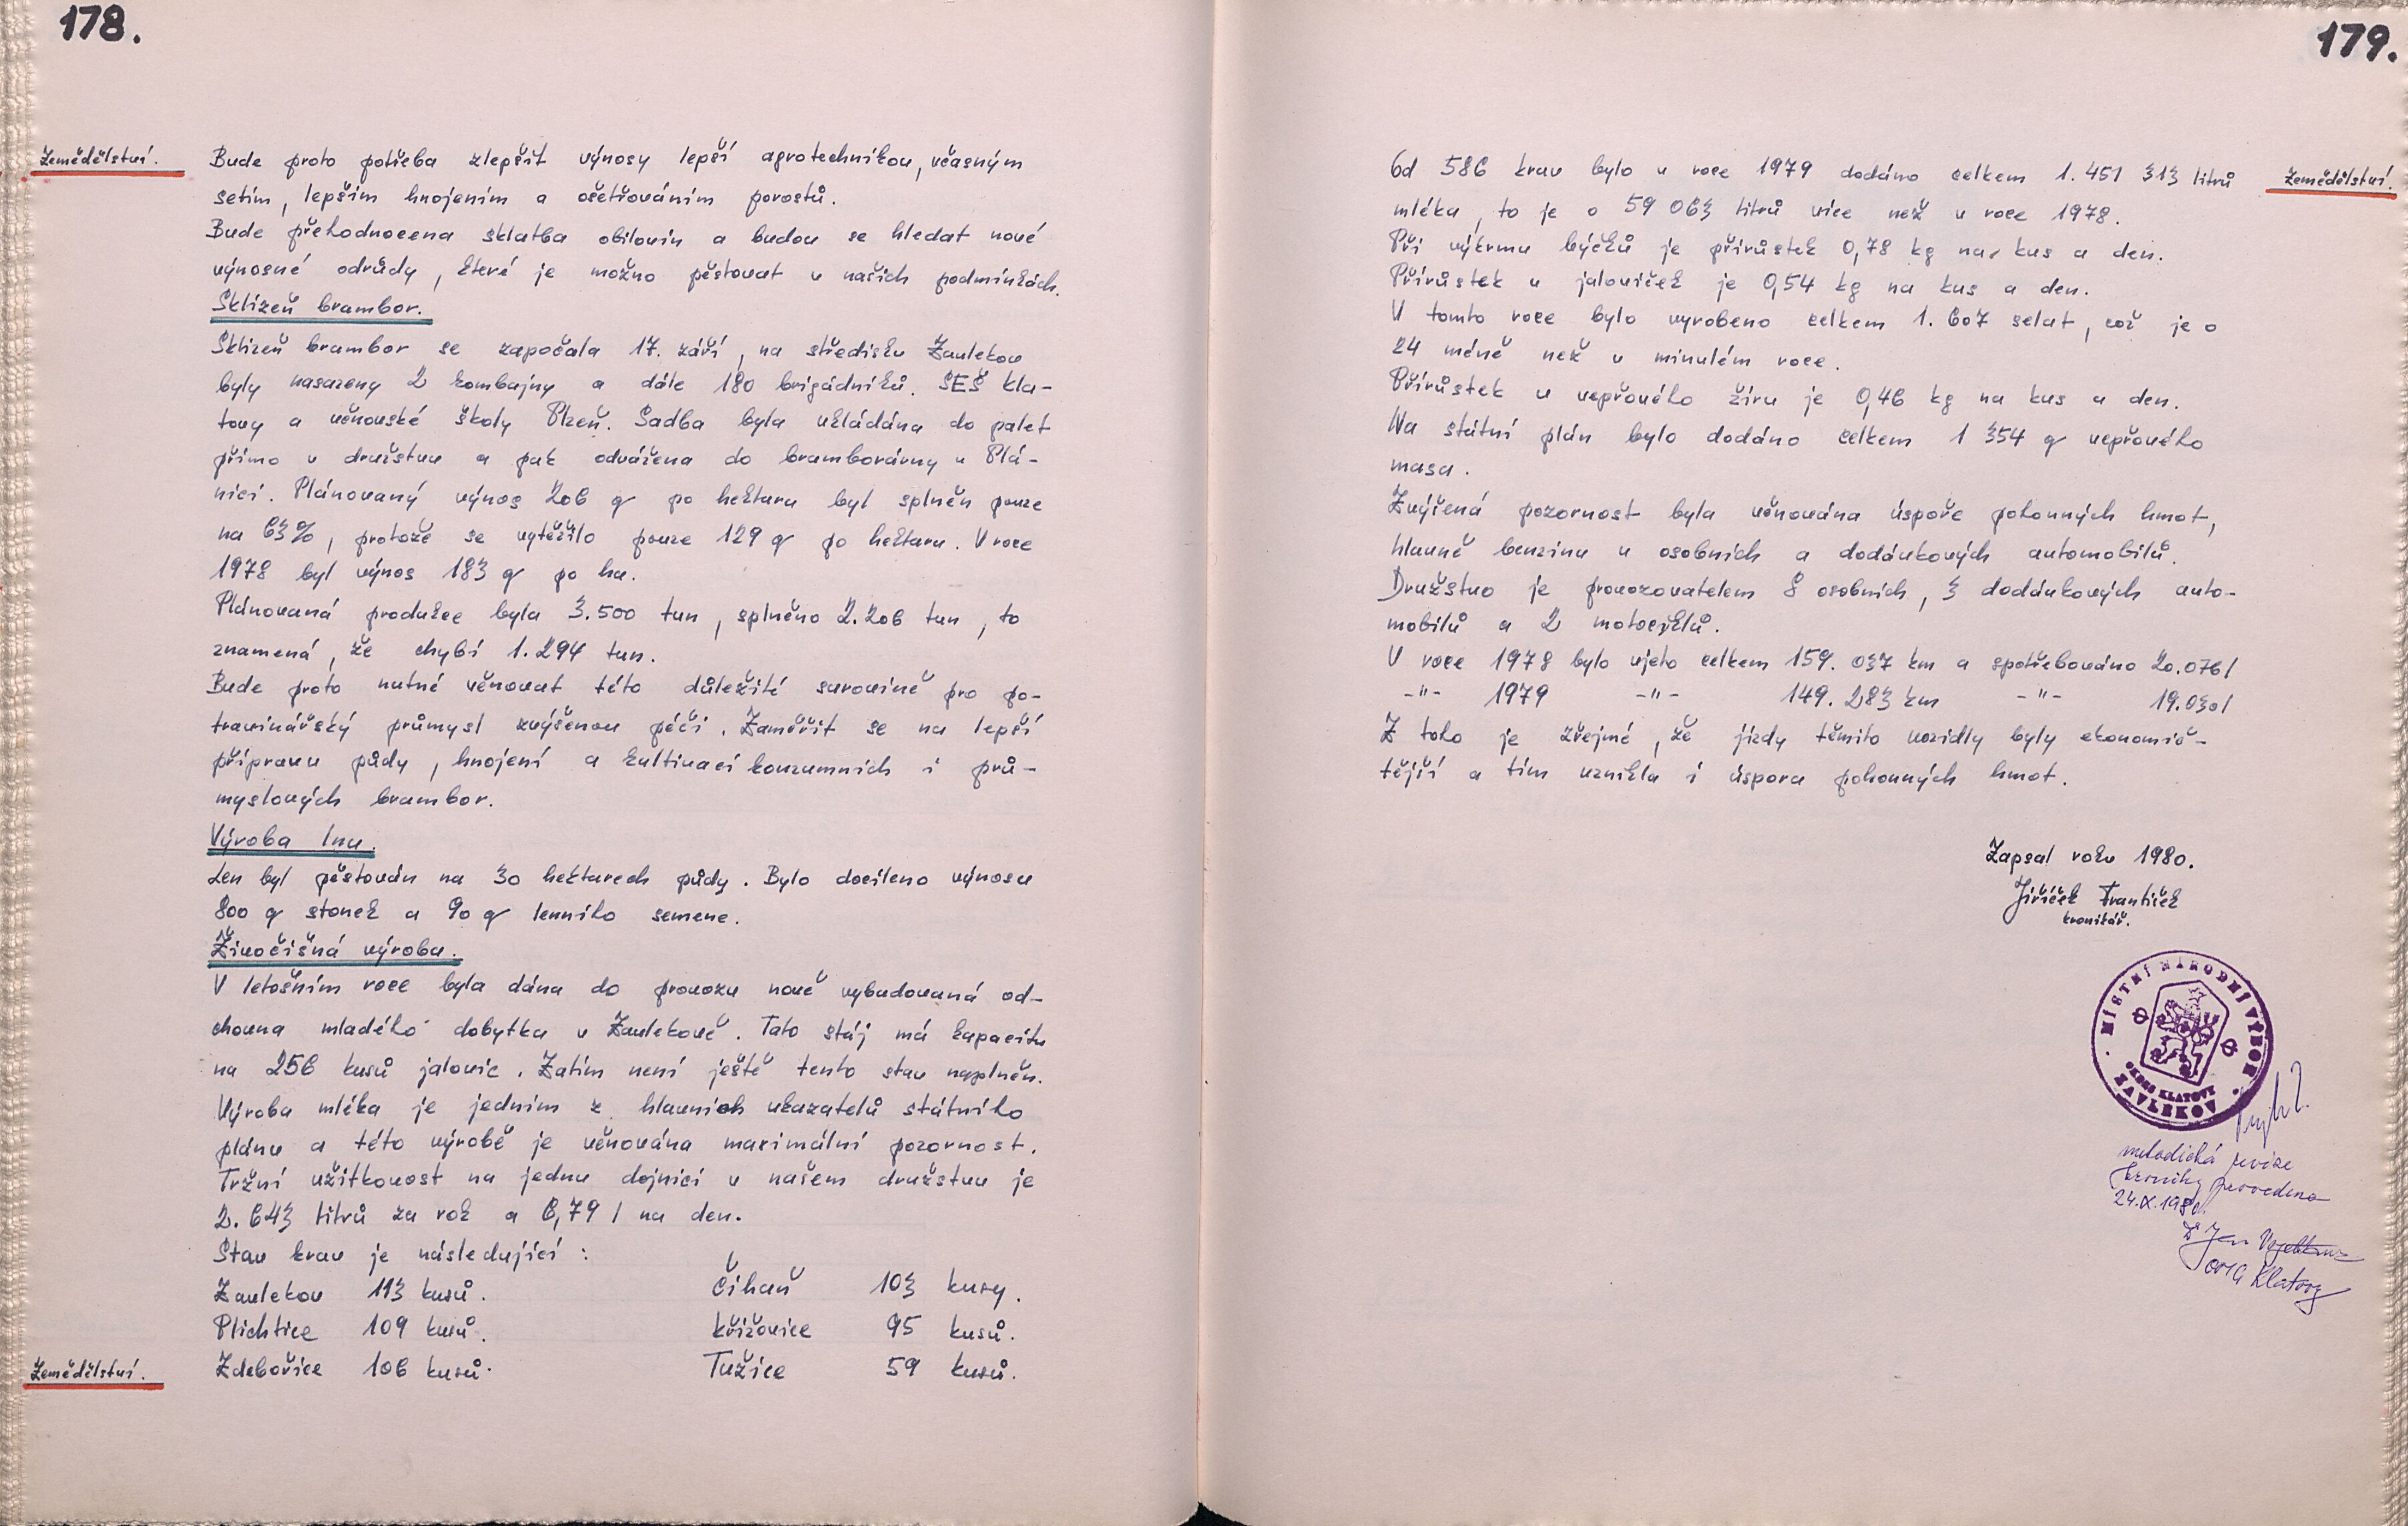 178.
Zemědělství.
Bude proto potřeba zlepšit výnosy lepší agrotechnikou, včasným
setím, lepším hnojením a ošetřováním porostů.
Bude přehodnocena skladba obilovin a budou se hledat nové
výnosné odrůdy, které je možno pěstovat v našich podmínkách.
Sklizeň brambor.
Sklizeň brambor se započala 17. září, na středisku Zavlekov
byly nasazeny 2 kombajny a dále 180 brigádníků. SEŠ Kla-
tovy a věnovské školy Plzeň. Sadba byla ukládána do palet
přímo v družstvu a pak odvážena do bramborárny v Plá-
nici. Plánovaný výnos 206 q po hektaru byl splněn pouze
na 63%, protože se vytěžilo pouze 129 q po hektaru. V roce
1978 byl výnos 183 q po ha.
Plánovaná produkce byla 3.500 tun, splněno 2.206 tun, to
znamená, že chybí 1.294 tun.
Bude proto nutné věnovat této důležité surovině pro po-
travinářský průmysl zvýšenou péči. Zaměřit se na lepší
přípravu půdy, hnojení a kultivaci konzumních i prů-
myslových brambor.
Výroba lnu.
Len byl pěstován na 30 hektarech půdy. Bylo docíleno výnosu
800 q stonek a 90 q lenního semene.
Živočišná výroba.
V letošním roce byla dána do provozu nově vybudovaná od-
chovna mladého dobytka v Zavlekově. Tato stáj má kapacitu
na 256 kusů jalovic. Zatím není ještě tento stav naplněn.
Výroba mléka je jedním z hlavních ukazatelů státního
plánu a této výrobě je věnována maximální pozornost.
Tržní užitkovost na jednu dojnici v našem družstvu je
2.643 litrů za rok a 6,79 l na den.
Stav krav je následující :
Zavlekov 113 kusů. Čihaň 103 kusy.
Plichtice 109 kusů. Křižovice 95 kusů.
Zdebořice 106 kusů. Tužice 59 kusů.
Zemědělství.
179.
Zemědělství.
Od 586 krav bylo v roce 1979 dodáno celkem 1.451 313 litrů
mléka, to je o 59 063 litrů více než v roce 1978.
Při výkrmu býčků je přírůstek 0,78 kg na kus a den.
Přírůstek u jaloviček je 0,54 kg na kus a den.
V tomto roce bylo vyrobeno celkem 1.607 selat, což je o
24 méně než v minulém roce.
Přírůstek u vepřového žíru je 0,46 kg na kus a den.
Na státní plán bylo dodáno celkem 1 354 q vepřového
masa.
Zvýšená pozornost byla věnována úspoře pohonných hmot,
hlavně benzinu u osobních a dodávkových automobilů.
Družstvo je provozovatelem 8 osobních, 3 dodávkových auto-
mobilů a 2 motocyklů.
V roce 1978 bylo ujeto celkem 159.037 km a spotřebováno 20.076 l
-"- 1979 -"- 149.283 km -"- 19.030 l
Z toho je zřejmé, že jízdy těmito vozidly byly ekonomič-
tější a tím vznikla i úspora pohonných hmot.
Zapsal roku 1980.
Jiříček František
kronikář.
MÍSTNÍ NÁRODNÍ VÝBOR
OKRES KLATOVY
ZAVLEKOV
metodická revize
kroniky provedena
24.IX.1980.
Jan
Klatovy